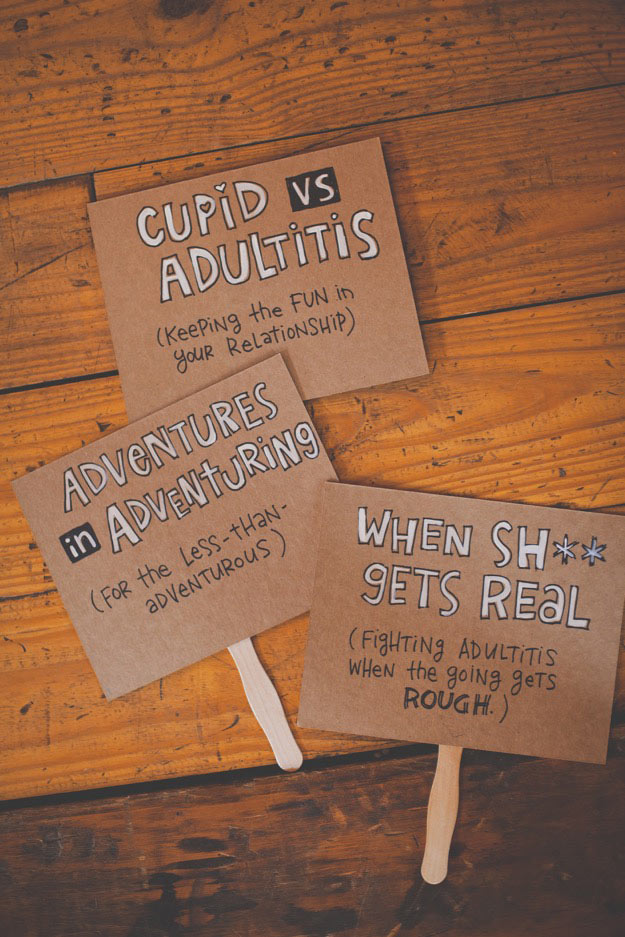 CUPID VS
ADULTITIS
(KEEPING the FUN in
YOUR RELATIONSHIP)
ADVENTURES
in ADVENTURING
(FOR the LESS-tHAN-
ADVENTUROUS)
WHEN SH**
GETS REAL
(FIGHTING ADULTITIS
WHEN the going gets
ROUGH.)